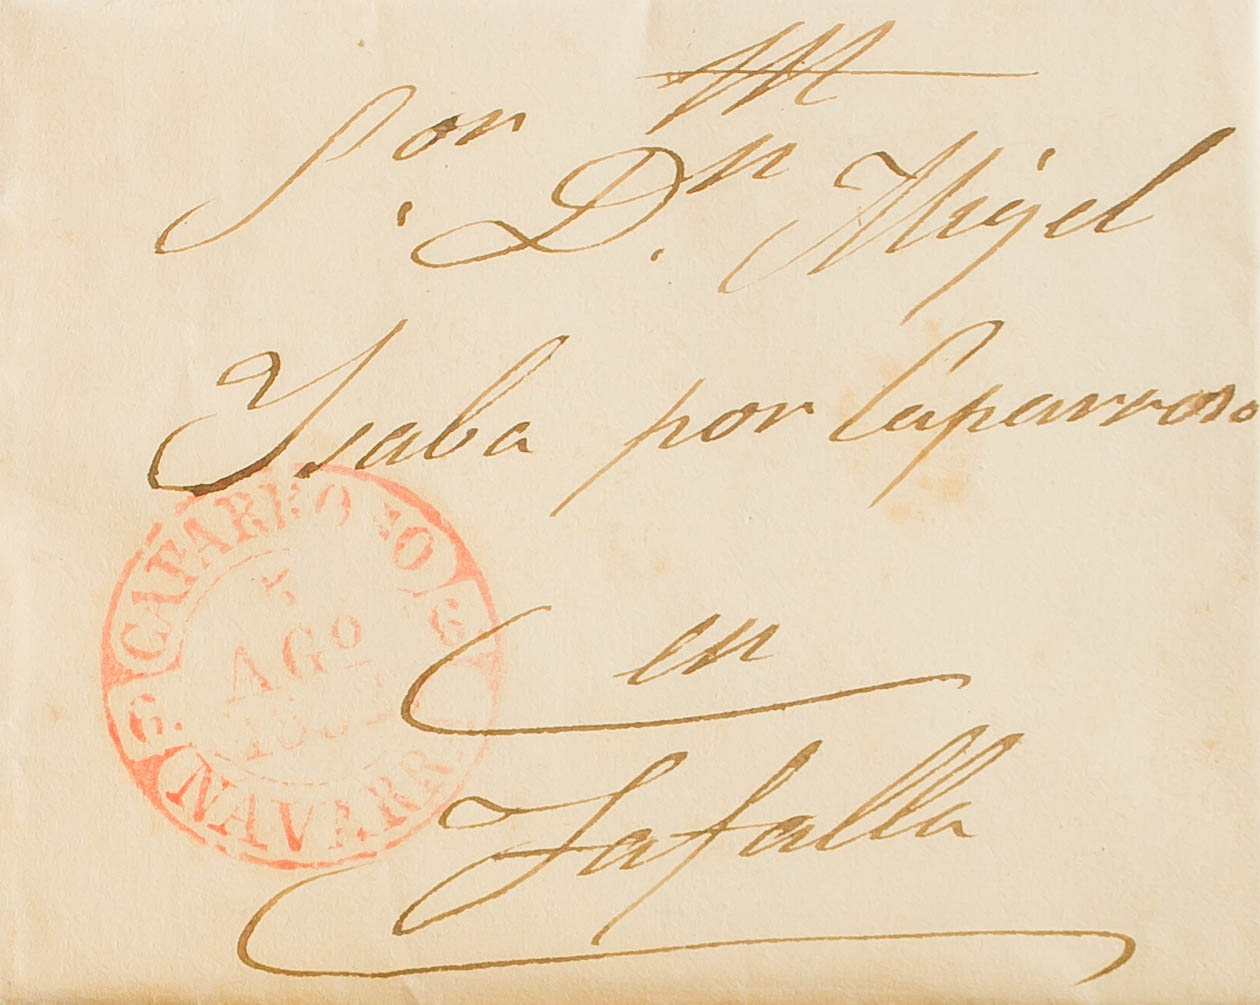 Sor. Dn. Migel
Ysaba por Caparroso
en
Tafalla
CAPARROSO
5
AGO
NAVARR